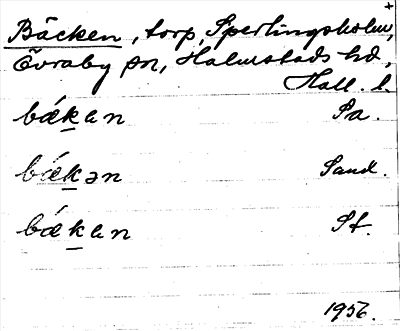 +
Bäcken, torp, Sperlingsholm,
Övraby sn, Halmstads hd,
Hall. l.
bǽkan Pa.
bǽkən Sand.
bǽkan St.
1956.